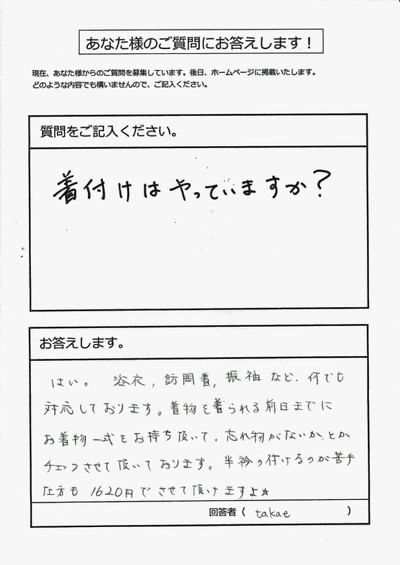 あなた様のご質問にお答えします！
現在、あなた様からのご質問を募集しています。後日、ホームページに掲載いたします。
どのような内容でも構いませんので、ご記入ください。
質問をご記入ください。
着付けはやっていますか？
お答えします。
はい。 浴衣，訪問着，振袖など、何でも
対応しております。着物を着られる前日までに
お着物一式をお持ち頂いて、忘れ物がないか、とか
チェックさせて頂いております。半衿の付けるのが苦手
な方も 1620円でさせて頂けますよ☆
回答者（ takae ）